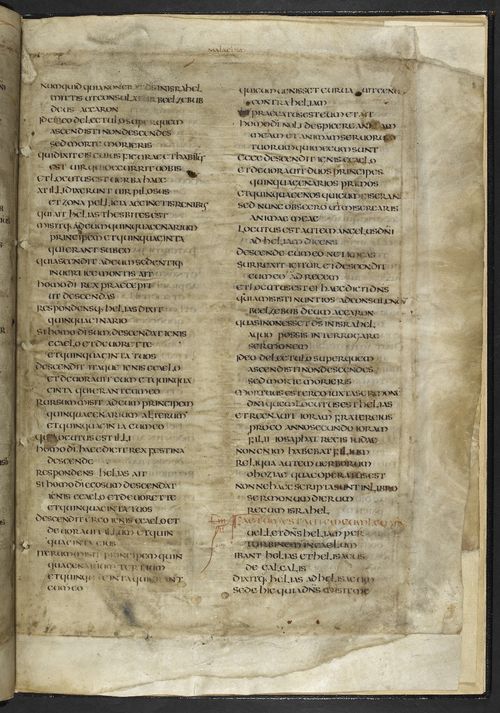 malachim
numquid quia non erat ds in israhel
mittis ut consulatur beelzebub
deus accaron
ideirco de lectulo super quem
ascendisti non descendes
sed morte morieris
qui dixit eis cuius figurae et habitus
est uir qui occurrit uobis
et locutus est uerba haec
at illi dixerunt uir pilosus
et zona pellicia accinctis renibus
qui ait helias thesbites est
misitq. ad eum quinquacenarium
principem et quinquaginta
qui erant sub eo
qui ascendit ad eum sedentiq.
in uertice montis ait
homo di rex praecepit
ut descendas
respondensq. helias dixit
quinquacenario
si homo di sum descendat ignis
e caelo et deuoret te
et quinquaginta tuos
descendit itaque ignis e caelo
et deuorauit eum et quinqua
ginta qui erant cum eo
rursum misit ad eum principem
quinquacenarium alterum
et quinquaginta cum eo
qui locutus est illi
homo di haec dicit rex festina
descende
respondens helias ait
si homo di ego sum descendat
ignis e caelo et deuoret te
et quinquaginta tuos
descendit ergo ignis e caelo et
deuorauit illum et quin
quaginta eius
iterum misit principem quin
quacenarium tertium
et quinquaginta qui erant
cum eo
qui cum uenisset curuauit genua
contra heliam
et precatus est eum et ait
homo di noli despicere animam
meam et animam seruorum
tuorum qui mecum sunt
ecce descendit ignis e caelo
et deuorauit duos principes
quinquacenarios primos
et quinquacenos qui cum eis erant
sed nunc obsecro ut miserearis
animae meae
locutus est autem angelus dni
ad heliam dicens
descende cum eo ne timeas
surrexit igitur et descendit
cum eo ad regem
et locutus est ei haec dicit dns
quia misisti nuntios ad consulendum
beelzebub deum accaron
quasi non esset ds in israhel
a quo possis interrogare
sermonem
ideo de lectulo super quem
ascendisti non descendes
sed morte morieris
mortuus est ergo iuxta sermonem
dni quem locutus est helias
et regnauit ioram frater eius
pro eo anno secundo ioram
filii iosaphat regis iudae
non enim habebat filium
reliqua autem uerborum
ohoziae quae operatus est
nonne haec scripta sunt in libro
sermonum dierum
regum israhel
Factum est autem cum leuare
uellet dns heliam per
turbinem in caelum
ibant helias et heliseus
de galgalis
dixitq. helias ad heliseum
sede hic quia dns misit me